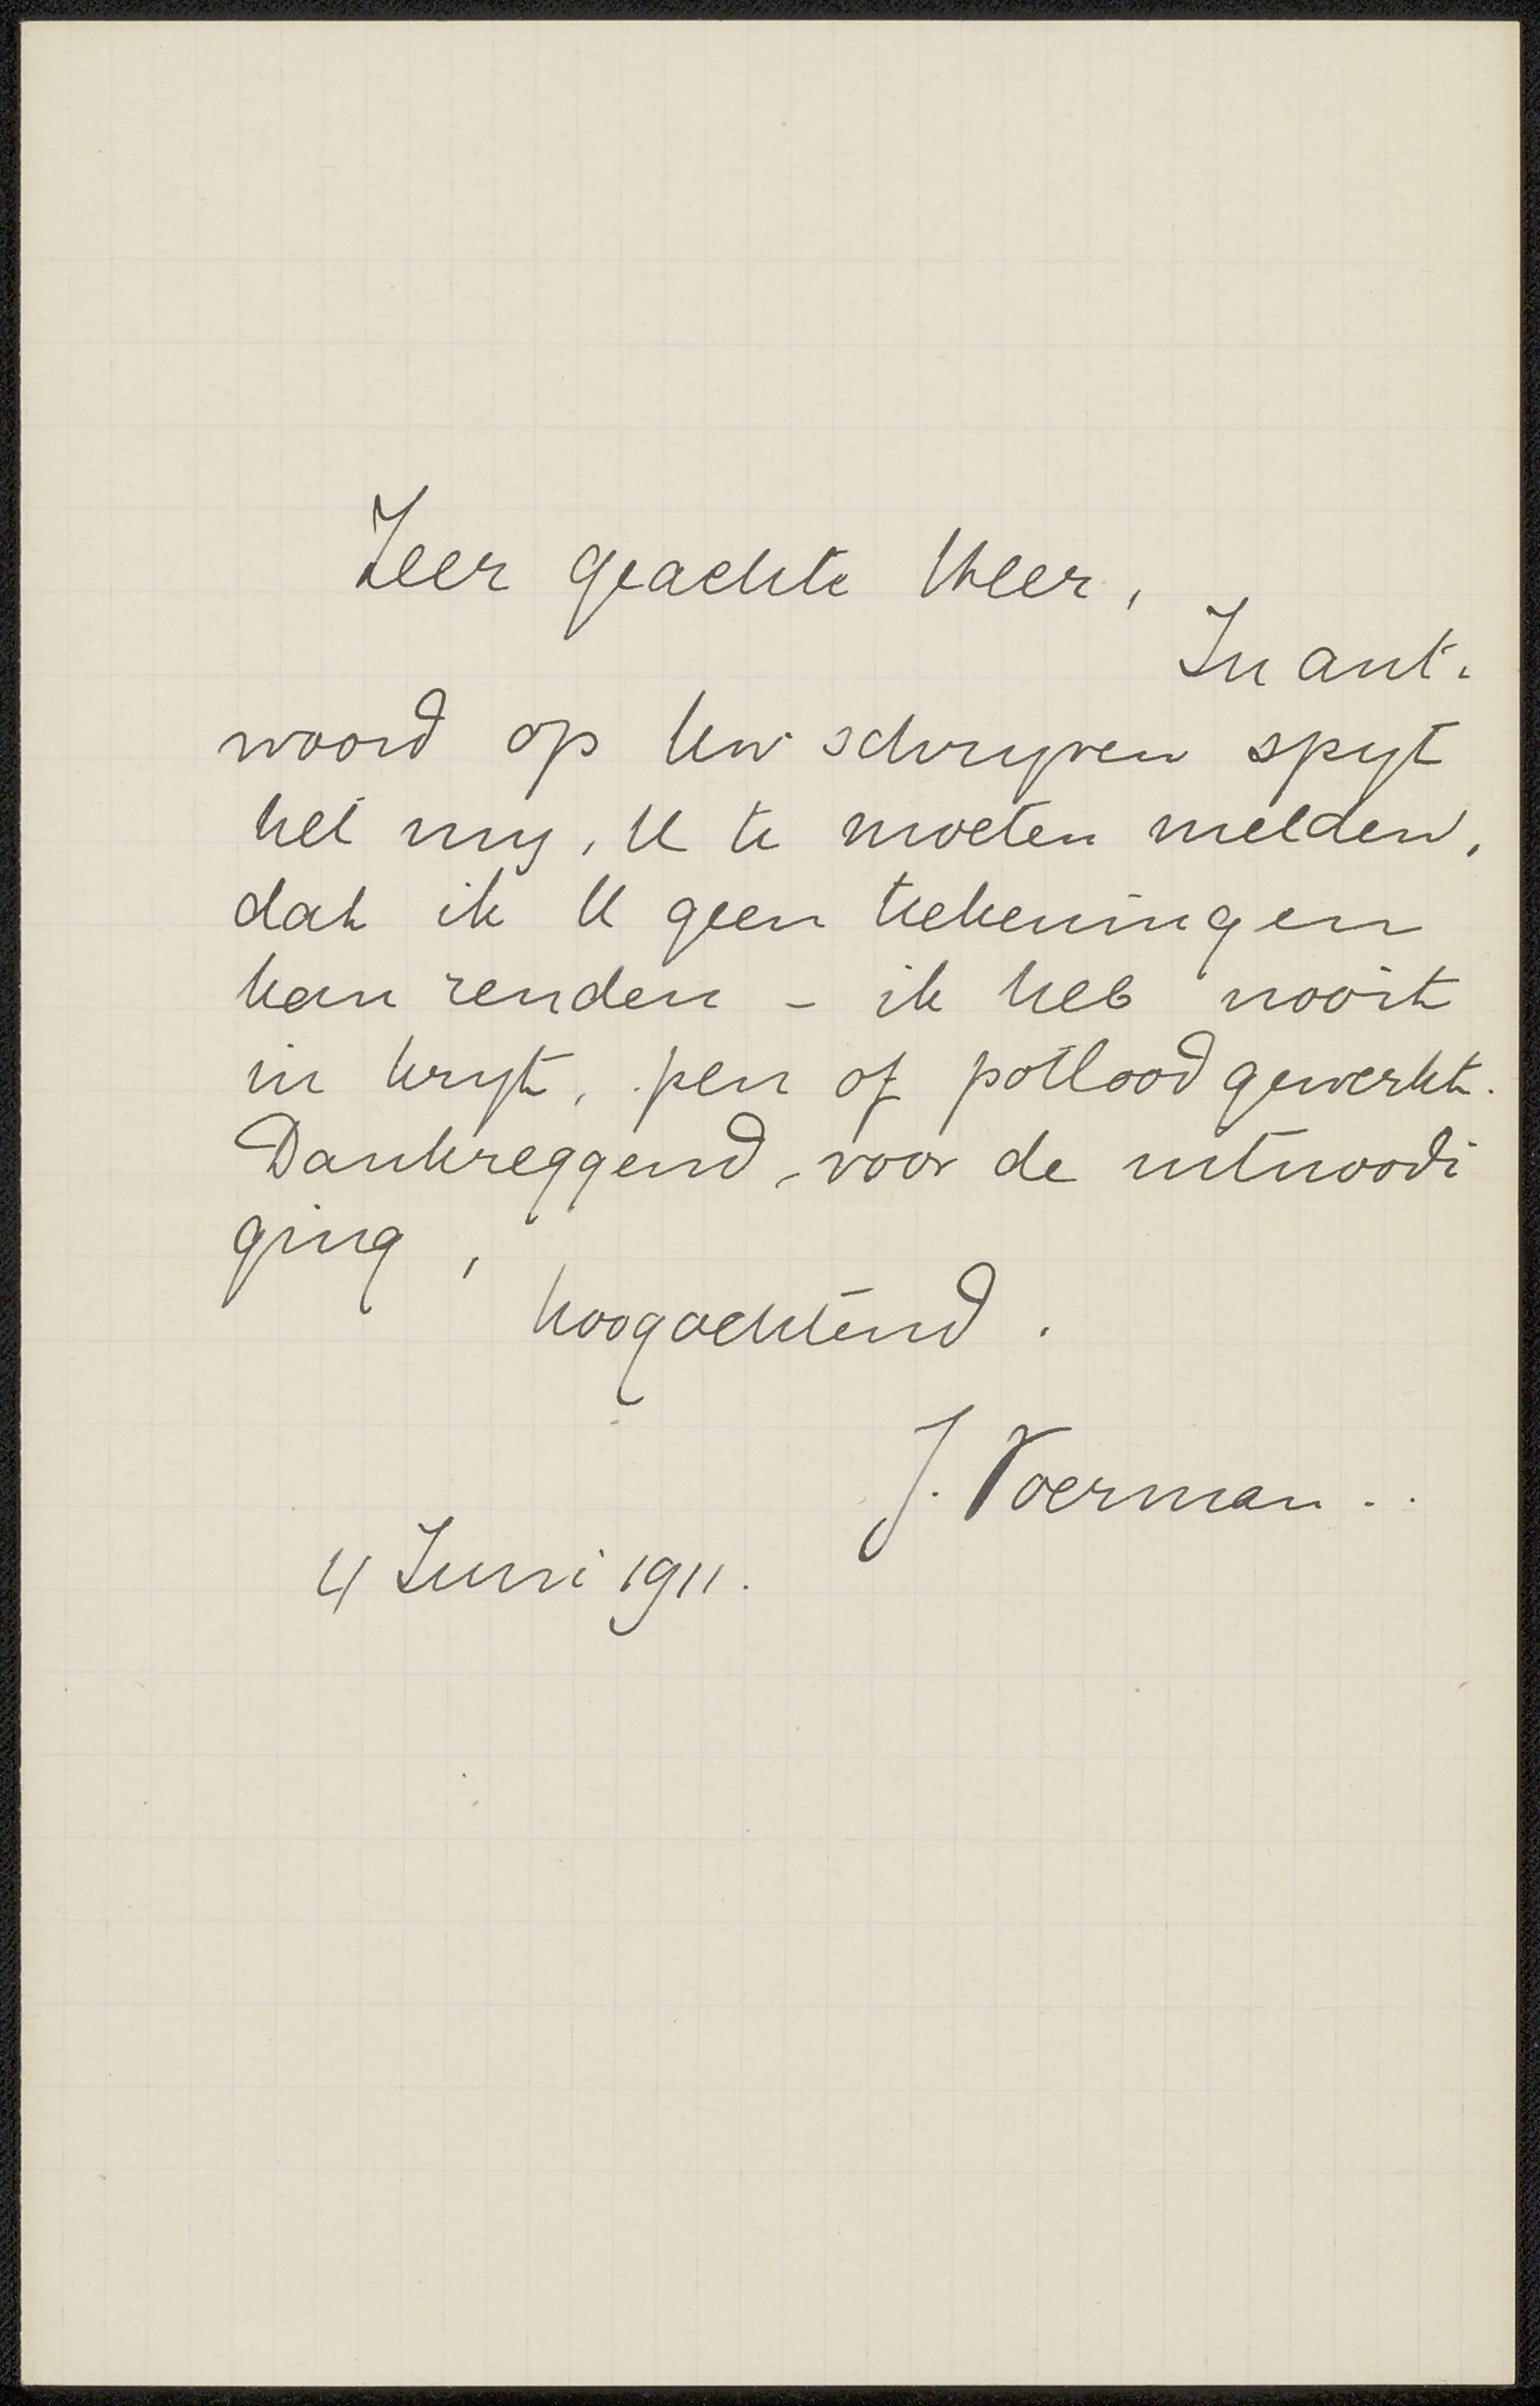 Zeer geachte Heer,
In ant-
woord op Uw schrijven spijt
het mij, U te moeten melden,
dat ik U geen teekeningen
kan zenden - ik heb nooit
in krijt, pen of potlood gewerkt.
Dankzeggend, voor de uitnoodi
ging,
hoogachtend.
J. Voerman..
4 Juni 1911.